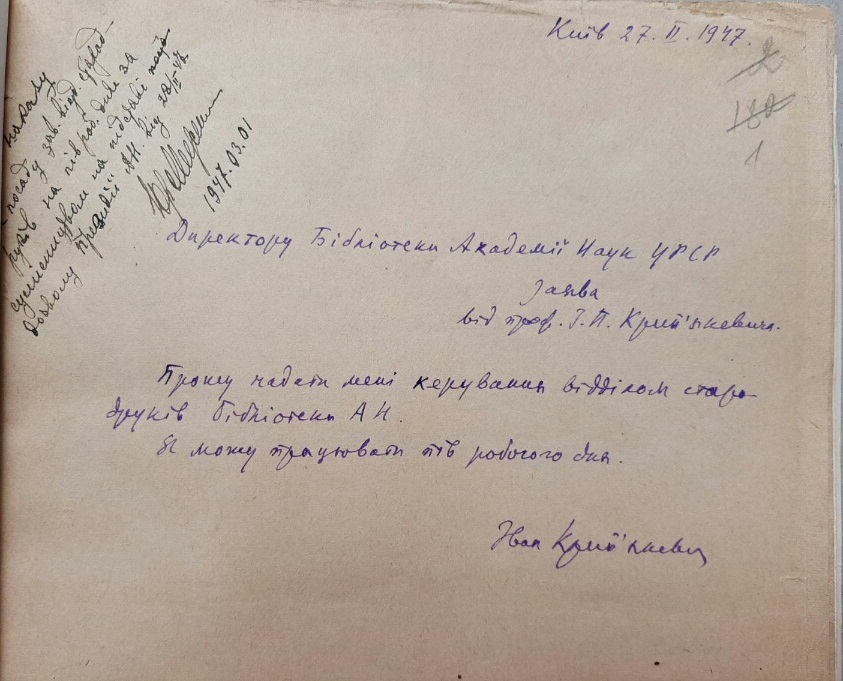 Київ 27. II. 1947.
2
182
1
наказу
посаду зав. відд. старод-
руків на пів роб. дня за
сумісництвом на підставі
дозволу президії АН. від 28/II 47.
1947.03.01
Директору Бібліотеки Академії Наук УРСР
Заява
від проф. І. П. Крип'якевича.
Прошу надати мені керування відділом старо-
друків Бібліотеки АН.
Я можу працювати пів робочого дня.
Іван Крип'якевич